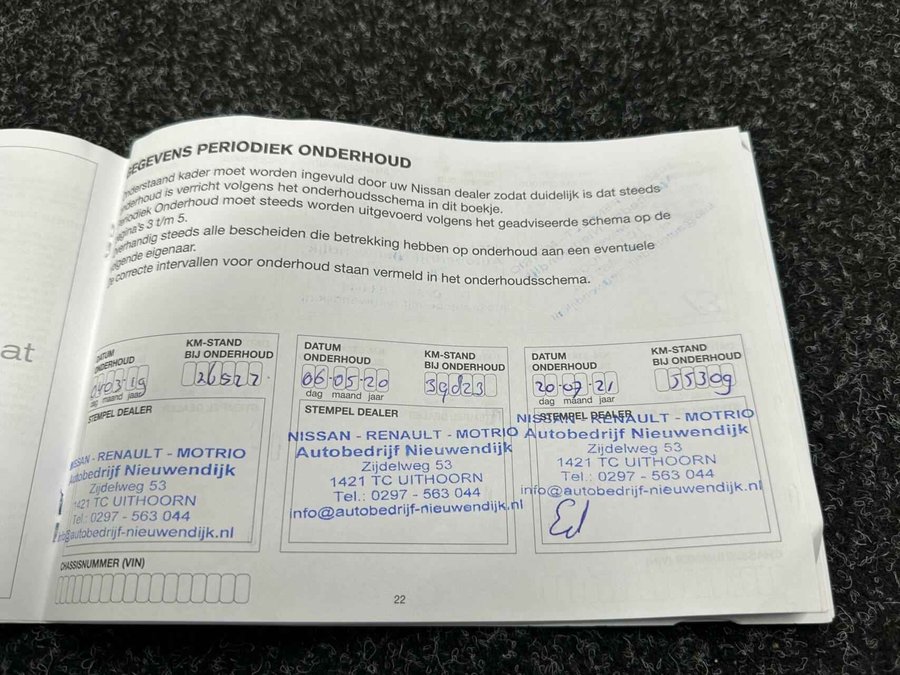 at
GEGEVENS PERIODIEK ONDERHOUD
Onderstaand kader moet worden ingevuld door uw Nissan dealer zodat duidelijk is dat steeds
onderhoud is verricht volgens het onderhoudsschema in dit boekje.
Periodiek Onderhoud moet steeds worden uitgevoerd volgens het geadviseerde schema op de
pagina's 3 t/m 5.
Overhandig steeds alle bescheiden die betrekking hebben op onderhoud aan een eventuele
volgende eigenaar.
De correcte intervallen voor onderhoud staan vermeld in het onderhoudsschema.
DATUM
ONDERHOUD
040319
dag maand jaar
KM-STAND
BIJ ONDERHOUD
26527
STEMPEL DEALER
NISSAN - RENAULT - MOTRIO
Autobedrijf Nieuwendijk
Zijdelweg 53
1421 TC UITHOORN
Tel.: 0297 - 563 044
info@autobedrijf-nieuwendijk.nl
DATUM
ONDERHOUD
06-05-20
dag maand jaar
KM-STAND
BIJ ONDERHOUD
39023
STEMPEL DEALER
NISSAN - RENAULT - MOTRIO
Autobedrijf Nieuwendijk
Zijdelweg 53
1421 TC UITHOORN
Tel.: 0297 - 563 044
info@autobedrijf-nieuwendijk.nl
DATUM
ONDERHOUD
20-07-21
dag maand jaar
KM-STAND
BIJ ONDERHOUD
55309
STEMPEL DEALER
NISSAN - RENAULT - MOTRIO
Autobedrijf Nieuwendijk
Zijdelweg 53
1421 TC UITHOORN
Tel.: 0297 - 563 044
info@autobedrijf-nieuwendijk.nl
CHASSISNUMMER (VIN)
22